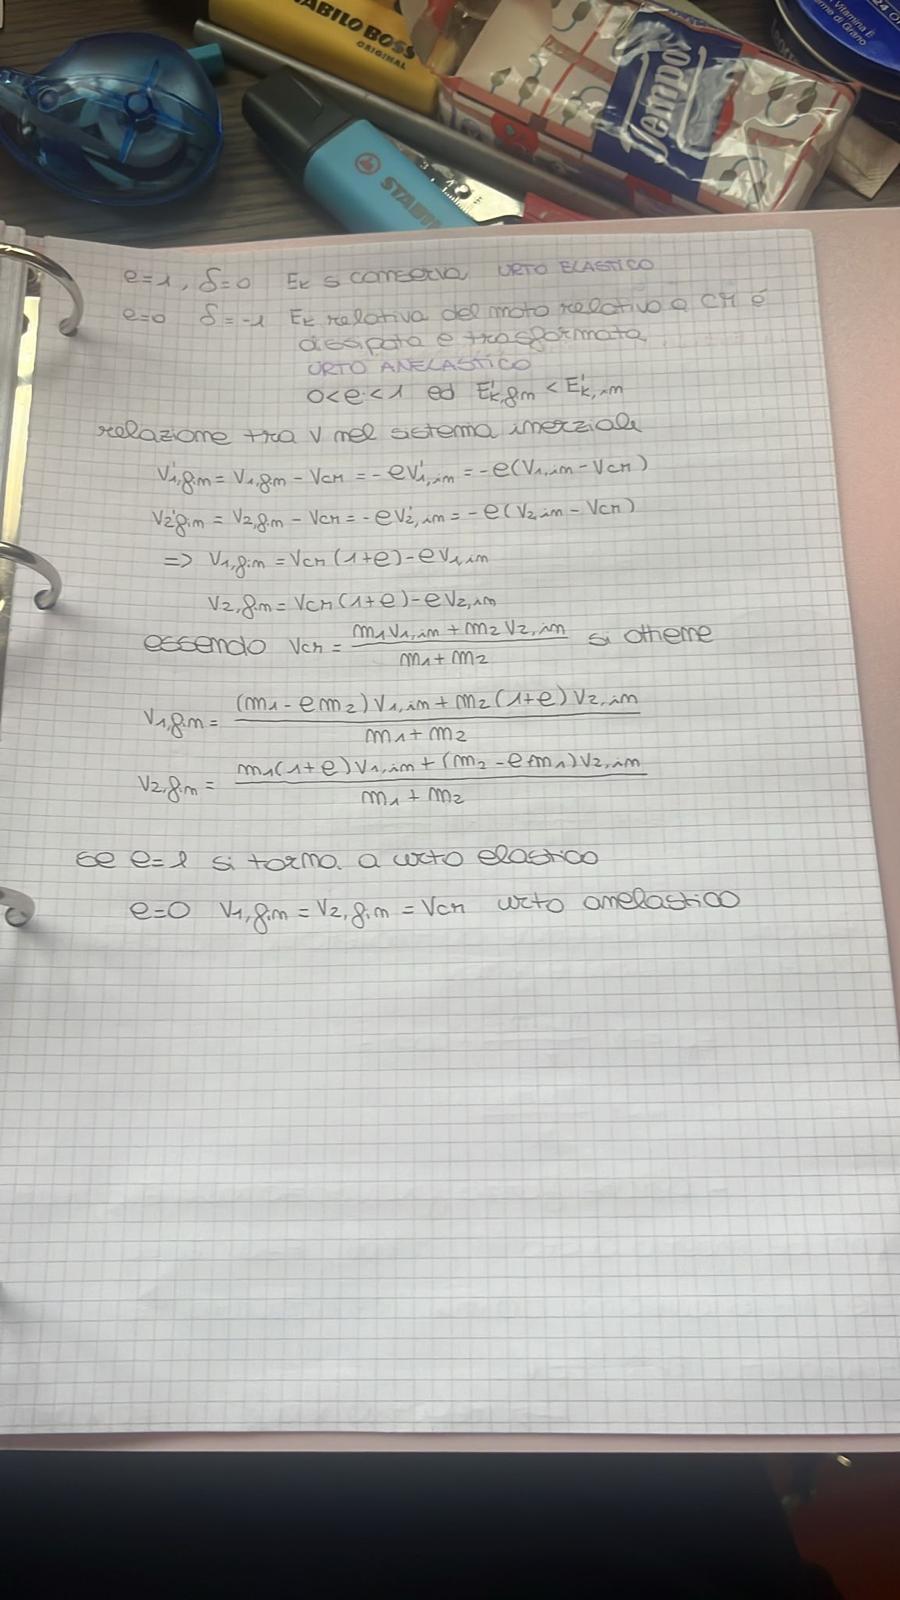 STABILO BOSS
ORIGINAL
Tempo
Vitamina E
STABI
e=1, δ=0 Ek s conserva URTO ELASTICO
e=0 δ=-1 Ek relativa del moto relativo a CM è
dissipata e trasformata
URTO ANELASTICO
0<e<1 ed E'k,fin < E'k,in
relazione tra v nel sistema inerziale
v'1,fin = v1,fin - vCM = -ev'1,in = -e(v1,in - vCM)
v'2,fin = v2,fin - vCM = -ev'2,in = -e(v2,in - vCM)
=> v1,fin = vCM(1+e) - ev1,in
v2,fin = vCM(1+e) - ev2,in
essendo vCM = (m1v1,in + m2v2,in) / (m1+m2) si ottiene
v1,fin = ((m1 - em2)v1,in + m2(1+e)v2,in) / (m1+m2)
v2,fin = (m1(1+e)v1,in + (m2 - em1)v2,in) / (m1+m2)
se e=1 si torna a urto elastico
e=0 v1,fin = v2,fin = vCM urto anelastico